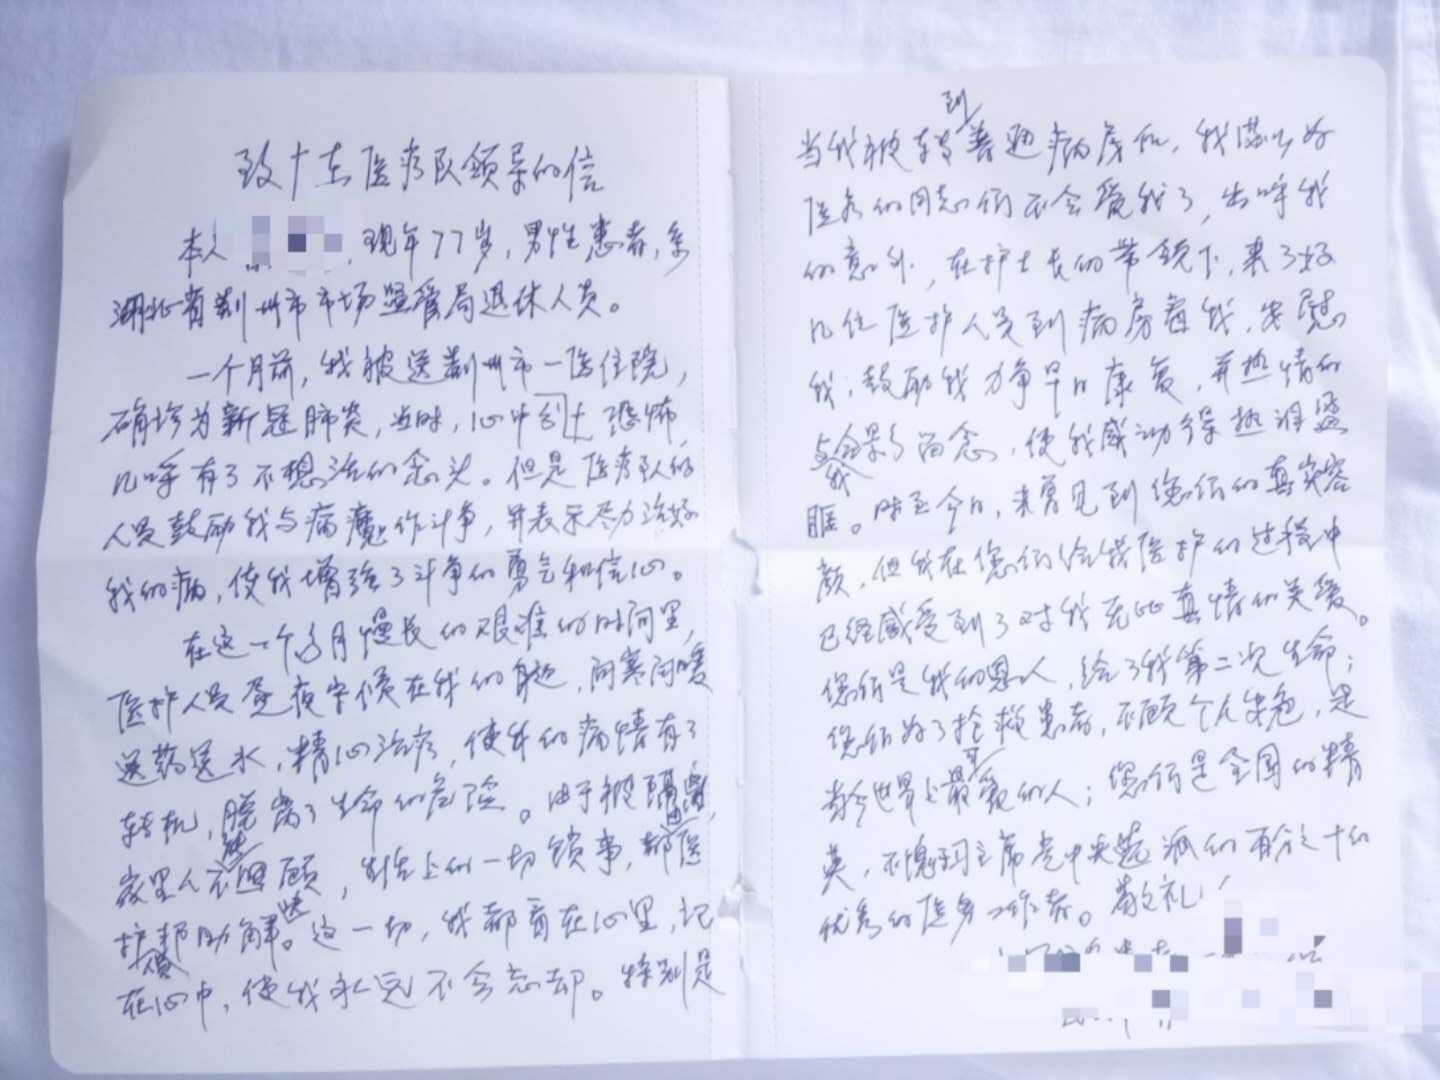 致广东医疗队领导的信
本人，现年77岁，男性患者，系
湖北省荆州市市场监管局退休人员。
一个月前，我被送荆州市一医住院，
确诊为新冠肺炎，当时，心中十分恐怖，
几乎有了不想活的念头。但是医疗队的
人员鼓励我与病魔作斗争，并表示尽力治好
我的病，使我增强了斗争的勇气和信心。
在这一个多月漫长的艰难的时间里，
医护人员昼夜守候在我的身边，问寒问暖
送药送水，精心治疗，使我的病情有了
转机，脱离了生命的危险。由于被隔离，
家里人不能照顾，生活上的一切锁事，都由医
护人员帮助解决。这一切，我都看在心里，记
在心中，使我永远不会忘却。特别是
当我被转到普通病房后，我满以为
医务的同志们不会管我了，出呼我
的意外，在护士长的带领下，来了好
几位医护人员到病房看我，安慰
我，鼓励我力争早日康复，并热情的
与我合影了留念，使我感动得热泪盈
眶。时至今日，未曾见到您们的真实容
颜，但我在您们给我医护的过程中
已经感受到了对我无比真情的关爱。
您们是我的恩人，给了我第二次生命；
您们为了抢救患者，不顾个人安危，是
当今世界上最可爱的人；您们是全国的精
英，不愧习主席党中央选派的百分之十的
优秀的医务工作者。敬礼！